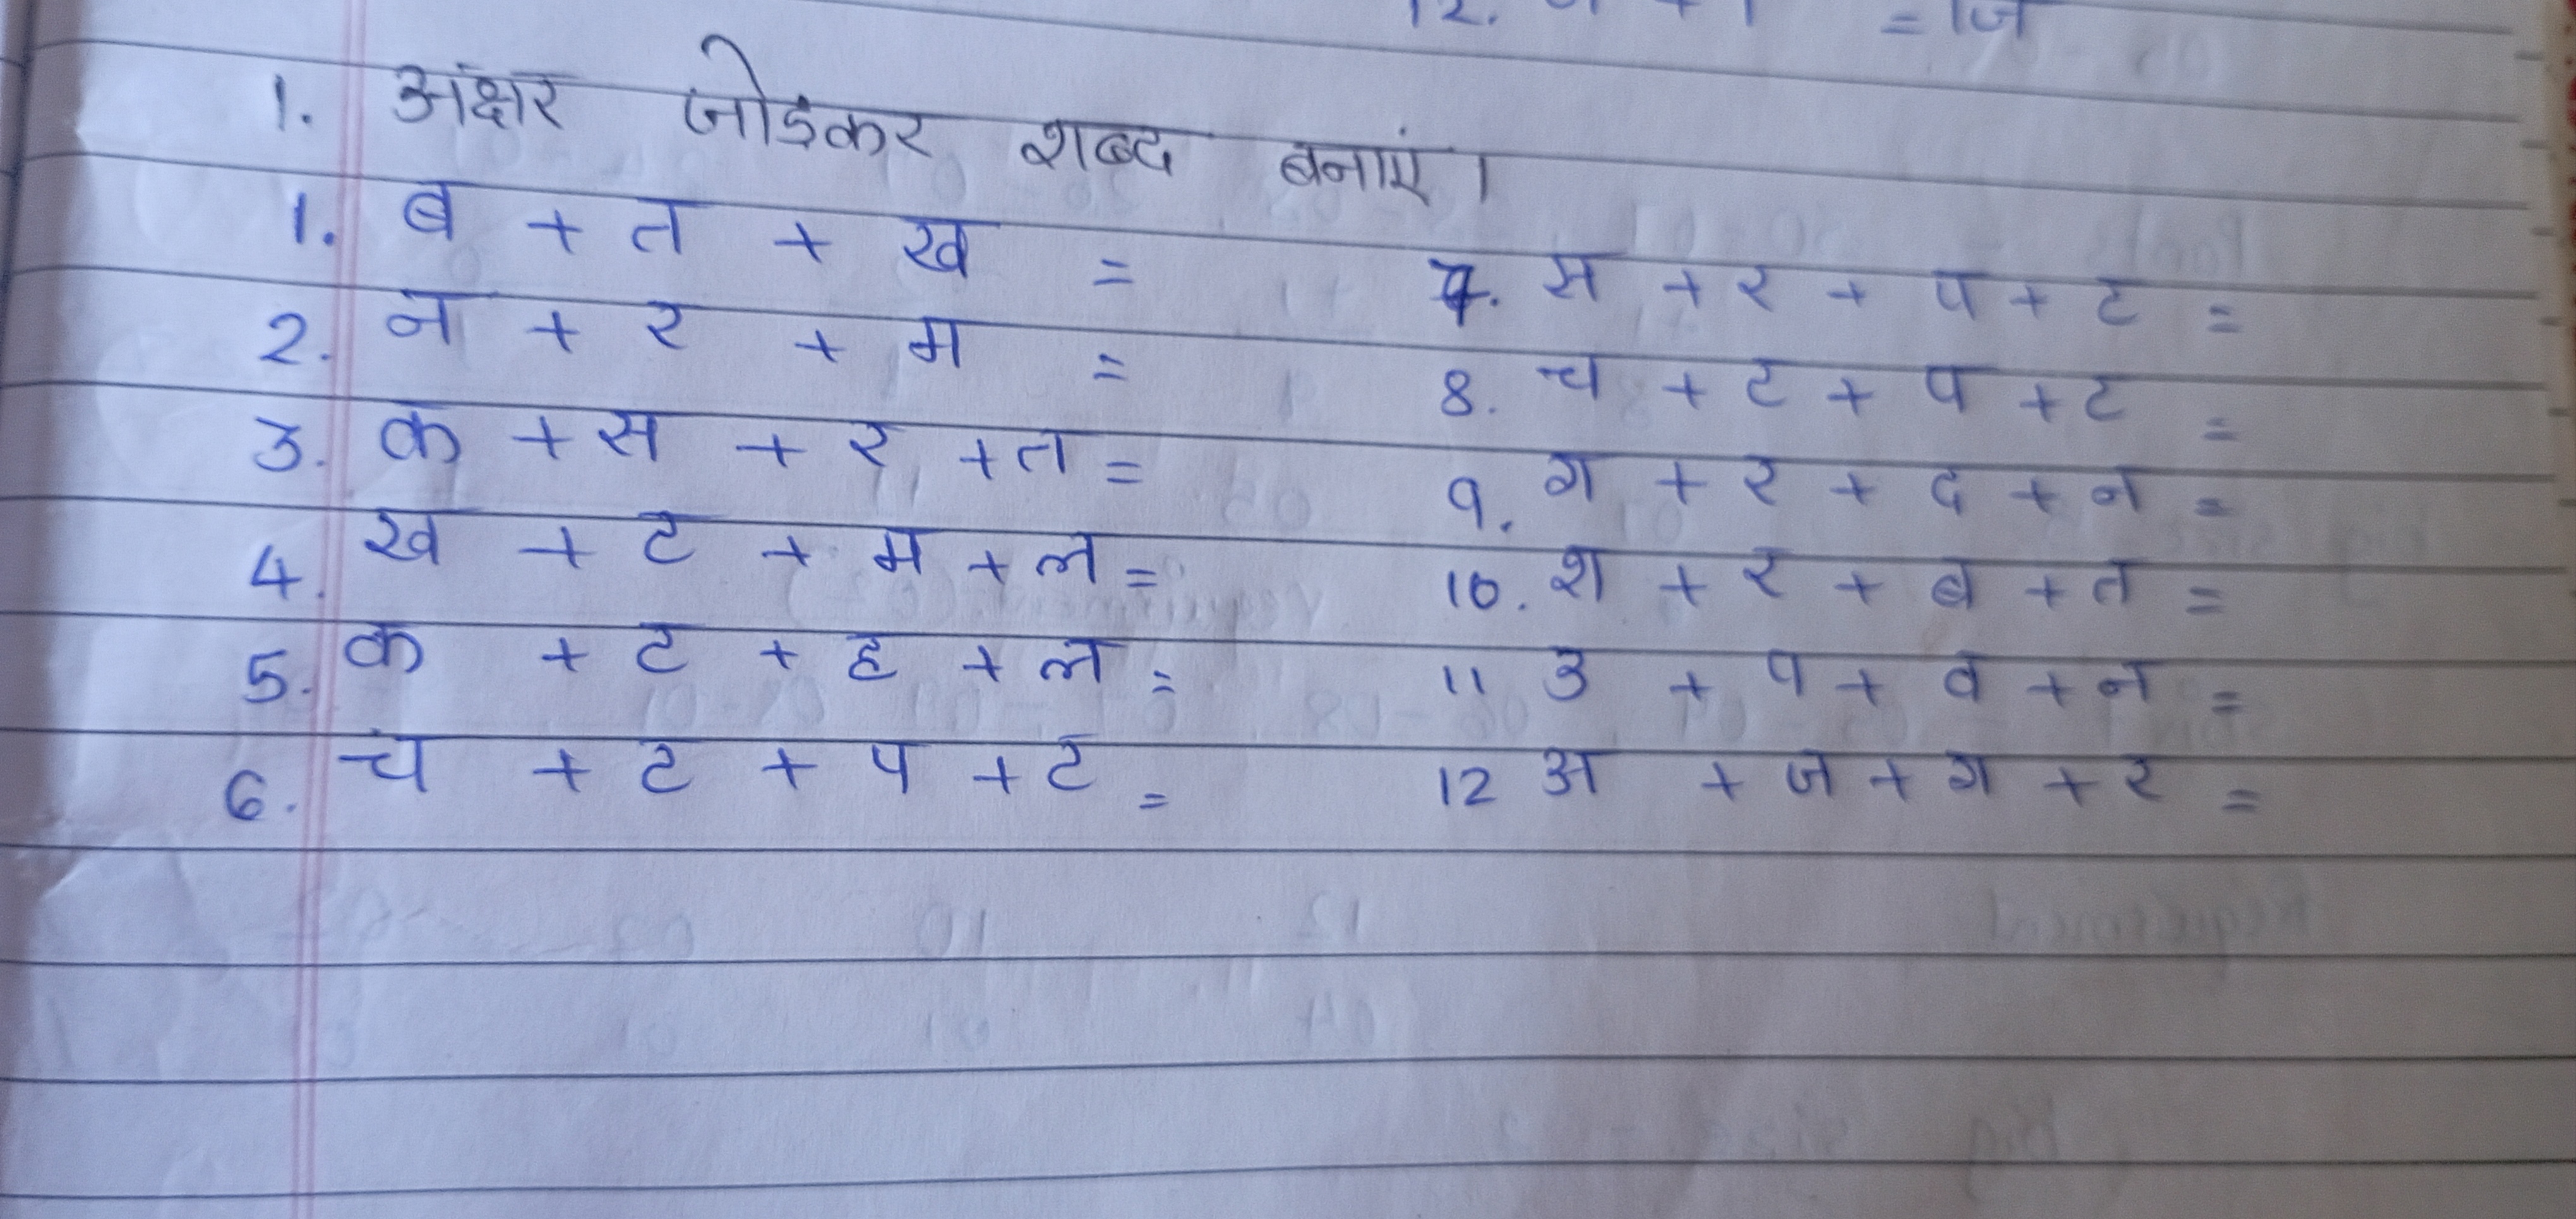 12. = जि
1. अंक्षर जोडकर शब्द बनाएं।
1. ब + त + ख =
2. न + र + म =
3. क + स + र + त =
4. ख + ट + म + ल =
5. क + ट + ह + ल =
6. च + ट + प + ट =
7. स + र + प + ट =
8. च + ट + प + ट =
9. ग + र + द + न =
10. श + र + ब + त =
11 उ + प + व + न =
12 अ + ज + ग + र =